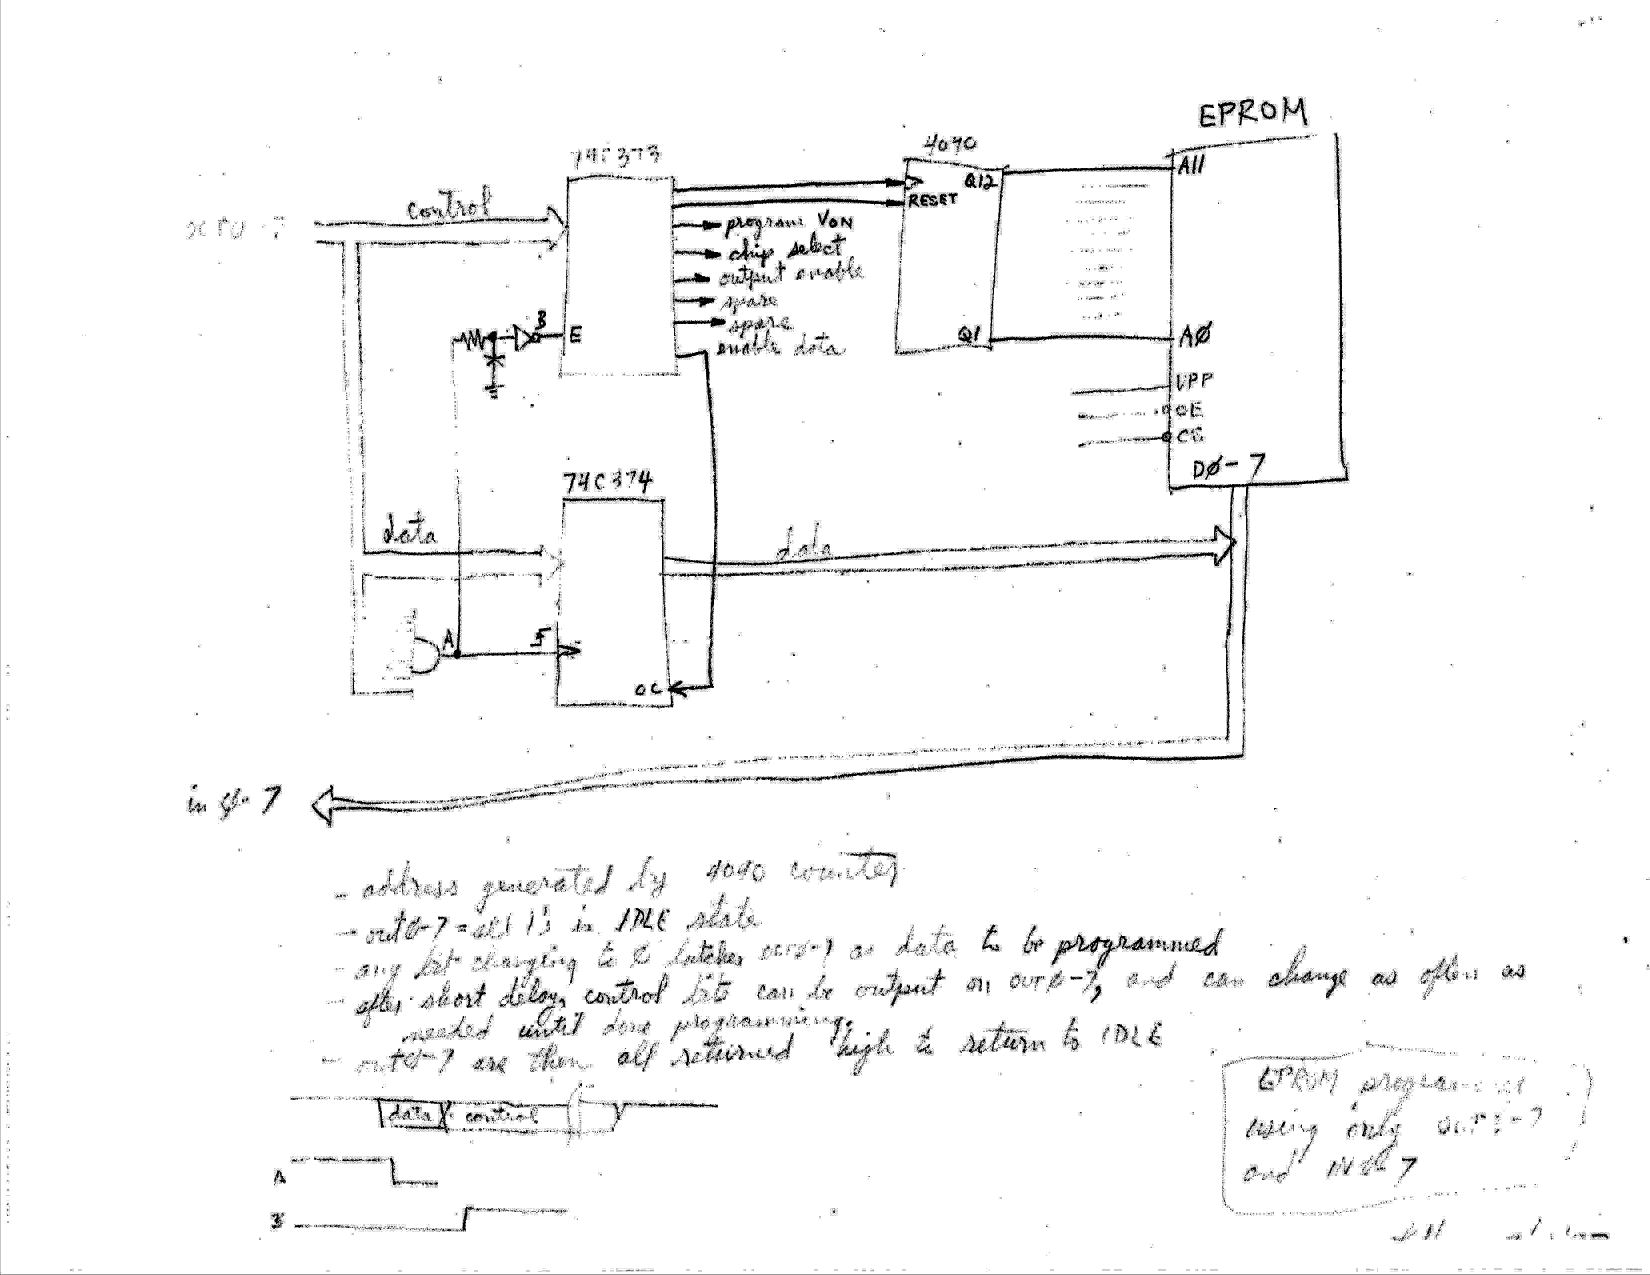 EPROM
74C373
4040
control
Q12
A11
RESET
program VON
chip select
output enable
spare
spare
enable data
B
E
Q1
AØ
VPP
OE
CE
DØ-7
74C374
data
data
A
OC
in Ø-7
- address generated by 4040 counter
- outØ-7 = all 1's in IDLE state
- any bit changing to Ø latches outØ-7 as data to be programmed
- after short delay, control bits can be output on outØ-7, and can change as often as
needed until done programming.
- outØ-7 are then all returned high to return to IDLE
data control
A
B
EPROM programmer
using only OUTØ-7
and INØ-7